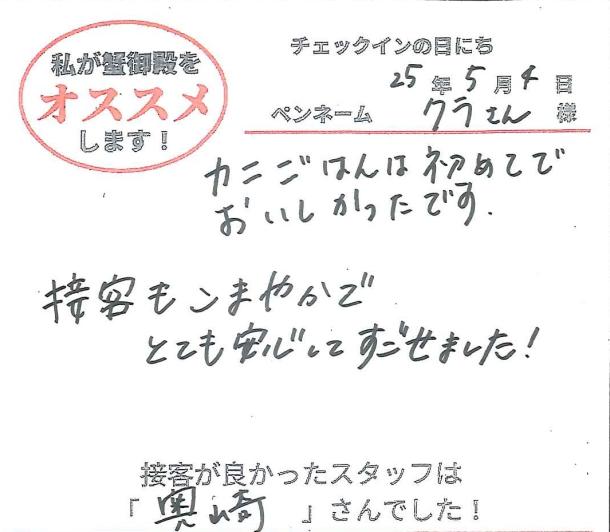 私が蟹御殿を
オススメ
します！
チェックインの日にち
25年5月4日
ペンネーム クラさん 様
カニごはんは初めてで
おいしかったです.
接客もこまやかで
とても安心してすごせました!
接客が良かったスタッフは
「奥崎」さんでした！